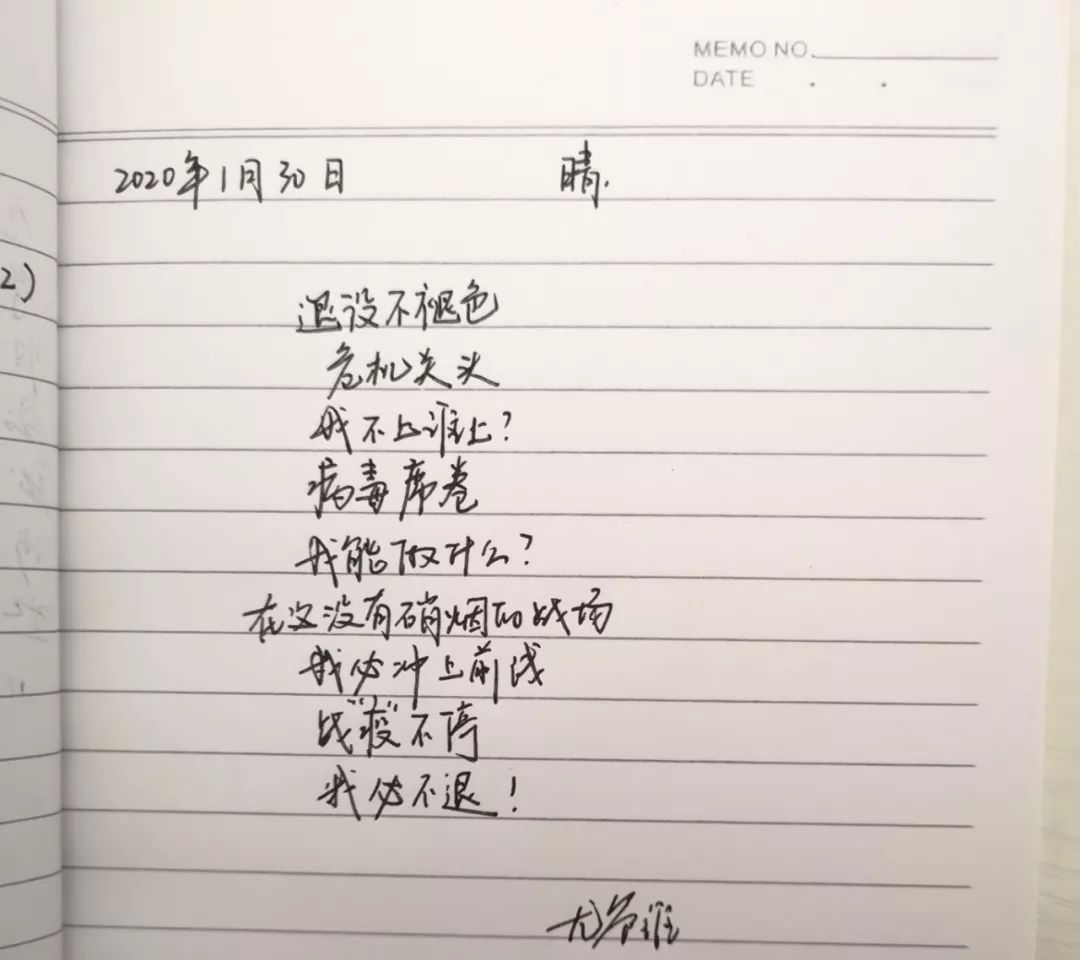 MEMO NO.
DATE . .
2020年1月30日 晴.
2)
退役不褪色
危机关头
我不上谁上?
病毒席卷
我能做什么?
在这没有硝烟的战场
我必冲上前线
战"疫"不停
我必不退!